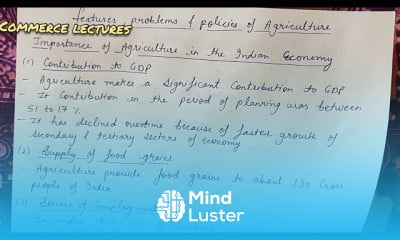 COMMERCE LECTURES
features, problems & policies of Agriculture
Importance of Agriculture in the Indian Economy
(1) Contribution to GDP
- Agriculture makes a significant Contribution to GDP
- It Contribution in the period of planning was between
51 to 17 %
- It has declined overtime because of faster growth of
secondary & tertiary sectors of economy
(2) Supply of food grains
- Agriculture provide food grains to about 130 Crore
people of India
Source of Employment
- In India
Mind
Luster